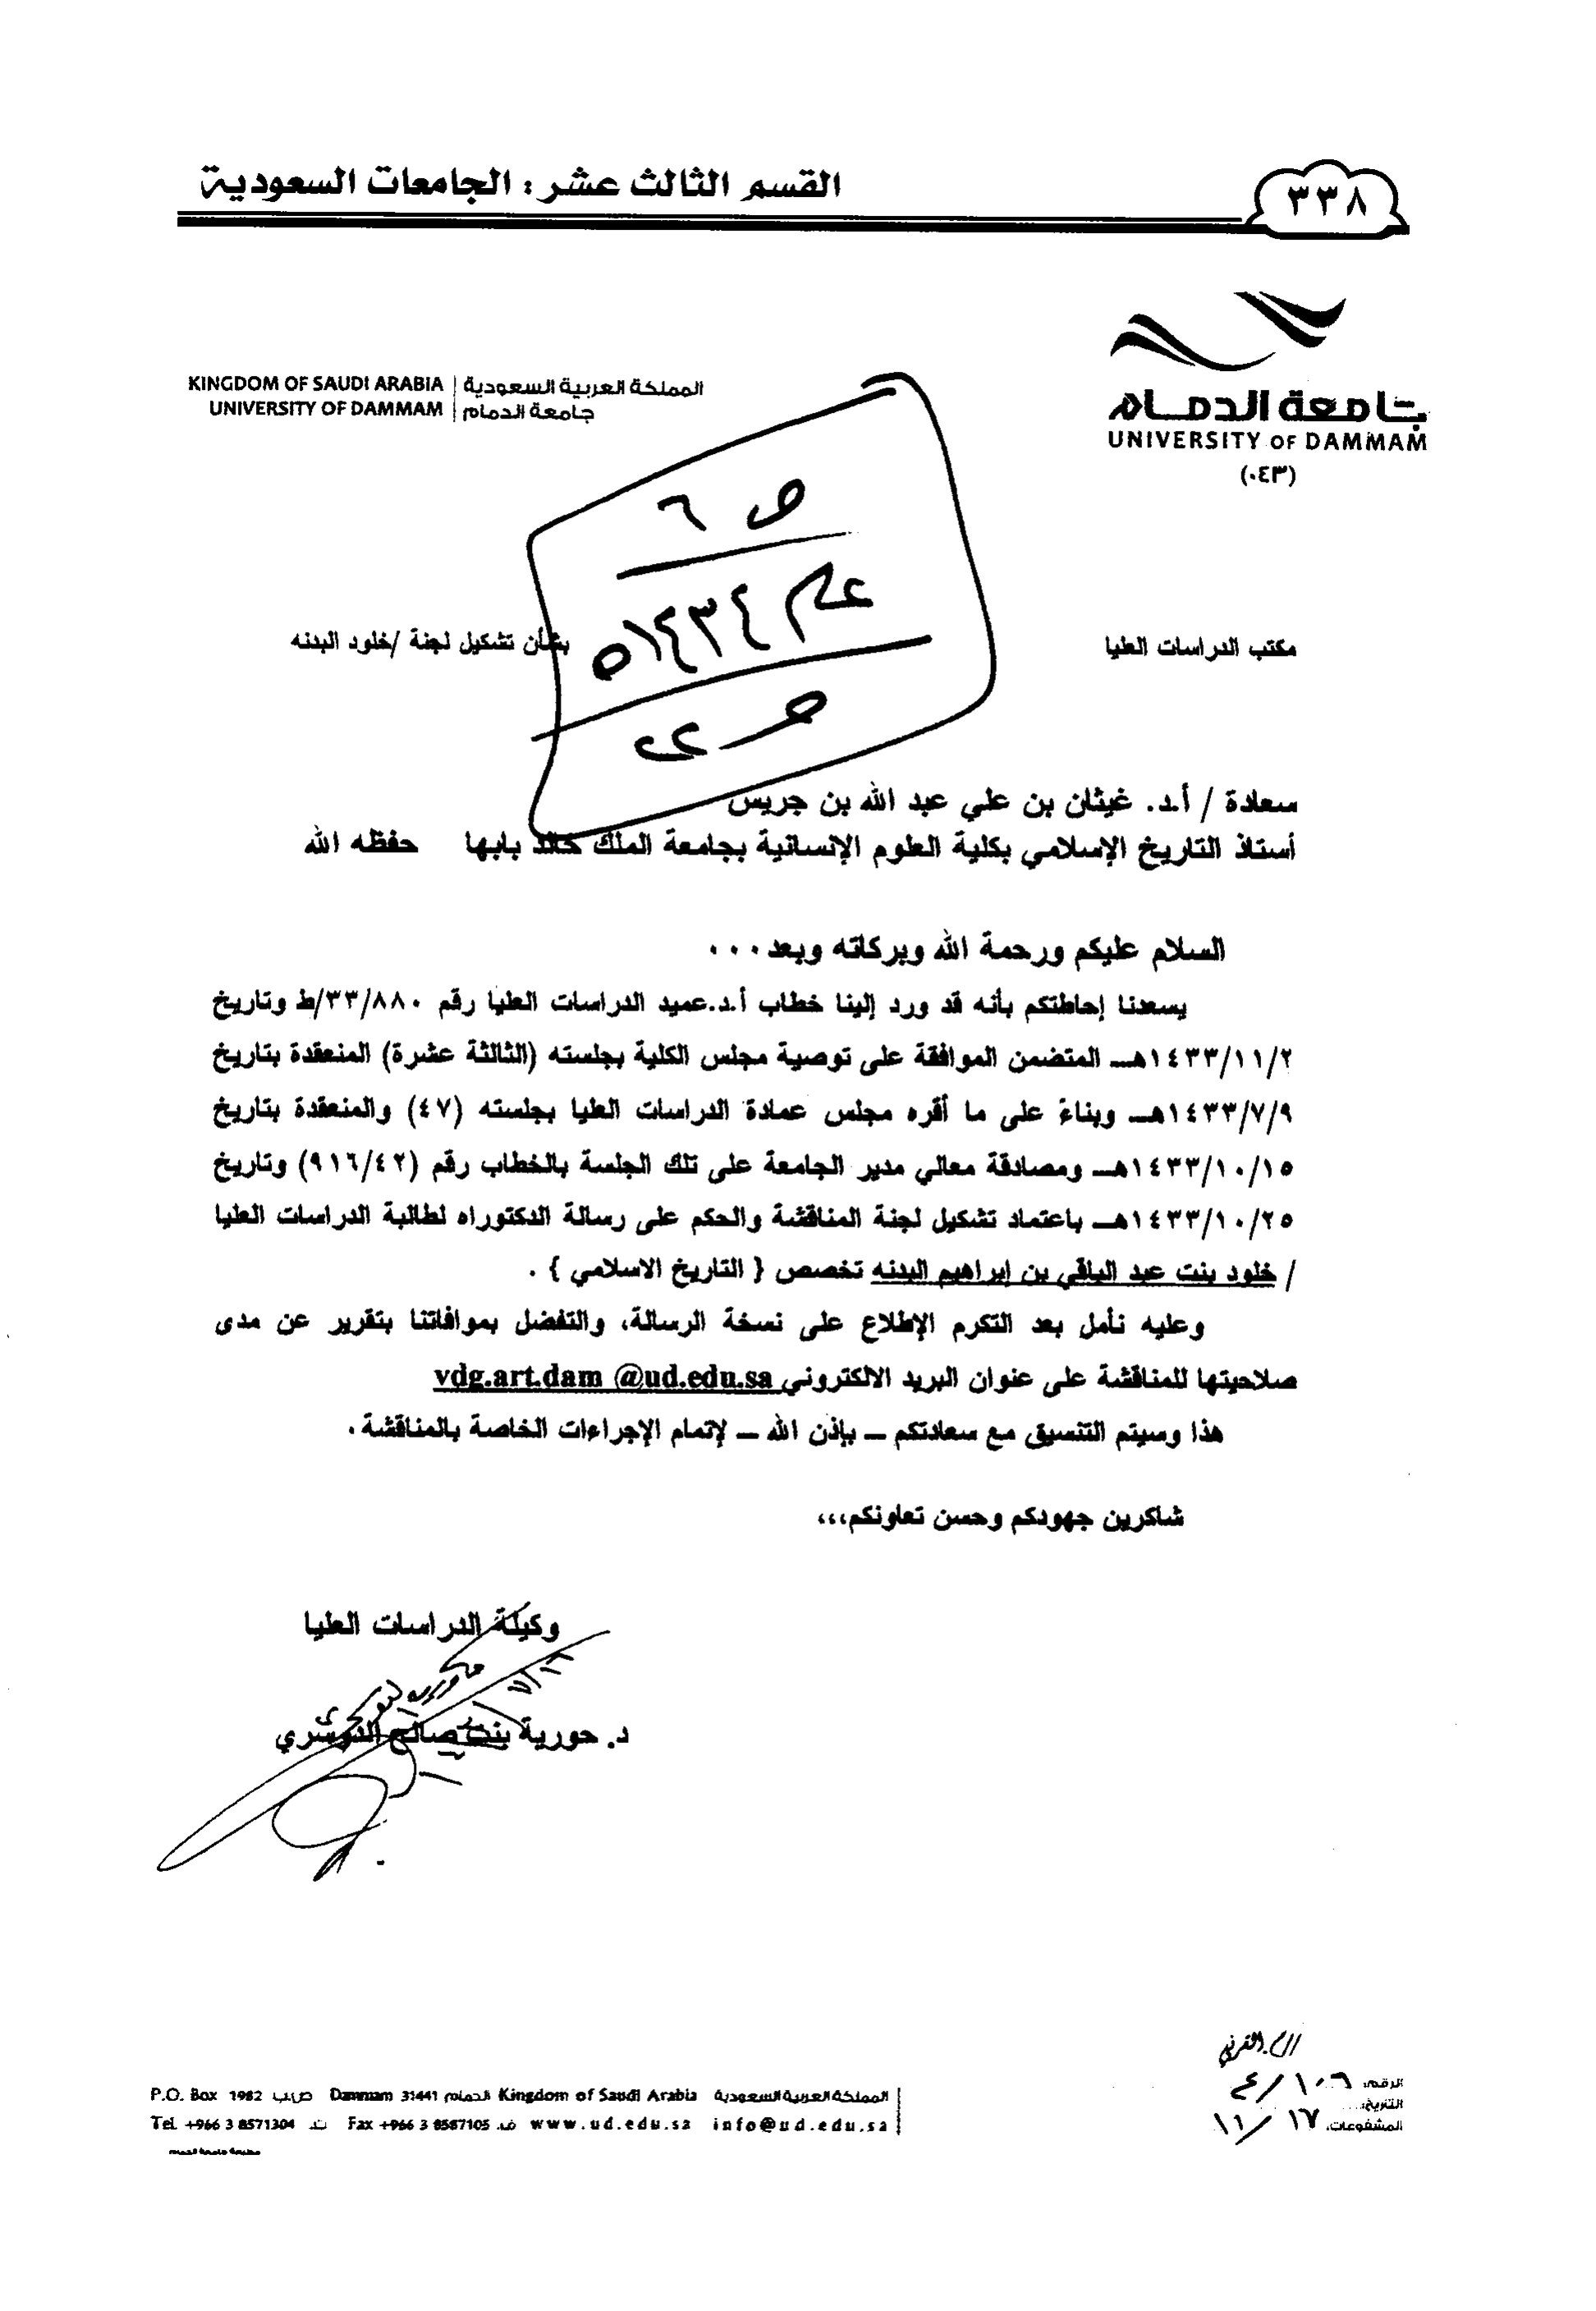 ٣٣٨
القسم الثالث عشر : الجامعات السعودية
جامعة الدمام
UNIVERSITY OF DAMMAM
(٠٤٣)
KINGDOM OF SAUDI ARABIA | المملكة العربية السعودية
UNIVERSITY OF DAMMAM | جامعة الدمام
ص ٦
١٤٣٤ه
مكتب الدراسات العليا
بشأن تشكيل لجنة /خلود البدنه
سعادة / أ.د. غيثان بن علي عبد الله بن جريس
أستاذ التاريخ الإسلامي بكلية العلوم الإنسانية بجامعة الملك خالد بابها حفظه الله
السلام عليكم ورحمة الله وبركاته وبعد . . .
يسعدنا إحاطتكم بأنه قد ورد إلينا خطاب أ.د.عميد الدراسات العليا رقم ٣٣/٨٨٠/ط وتاريخ
١٤٣٣/١١/٢هـ المتضمن الموافقة على توصية مجلس الكلية بجلسته (الثالثة عشرة) المنعقدة بتاريخ
١٤٣٣/٧/٩هـ وبناءً على ما أقره مجلس عمادة الدراسات العليا بجلسته (٤٧) والمنعقدة بتاريخ
١٤٣٣/١٠/١٥هـ ومصادقة معالي مدير الجامعة على تلك الجلسة بالخطاب رقم (٩١٦/٤٢) وتاريخ
١٤٣٣/١٠/٢٥هـ باعتماد تشكيل لجنة المناقشة والحكم على رسالة الدكتوراه لطالبة الدراسات العليا
/ خلود بنت عبد الباقي بن إبراهيم البدنه تخصص { التاريخ الاسلامي } .
وعليه نأمل بعد التكرم الإطلاع على نسخة الرسالة، والتفضل بموافاتنا بتقرير عن مدى
صلاحيتها للمناقشة على عنوان البريد الالكتروني vdg.art.dam @ud.edu.sa
هذا وسيتم التنسيق مع سعادتكم – بإذن الله – لإتمام الإجراءات الخاصة بالمناقشة .
شاكرين جهودكم وحسن تعاونكم،،،
وكيلة الدراسات العليا
د. حورية بنت صالح الدوسري
الرقم: ١٠٦/٤
التاريخ:
المشفوعات: ١١/١٧
P.O. Box 1982 ص.ب Dammam 31441 الدمام Kingdom of Saudi Arabia المملكة العربية السعودية
Tel. +966 3 8571304 ت. Fax +966 3 8587105 ف. www.ud.edu.sa info@ud.edu.sa
مطبعة جامعة الدمام